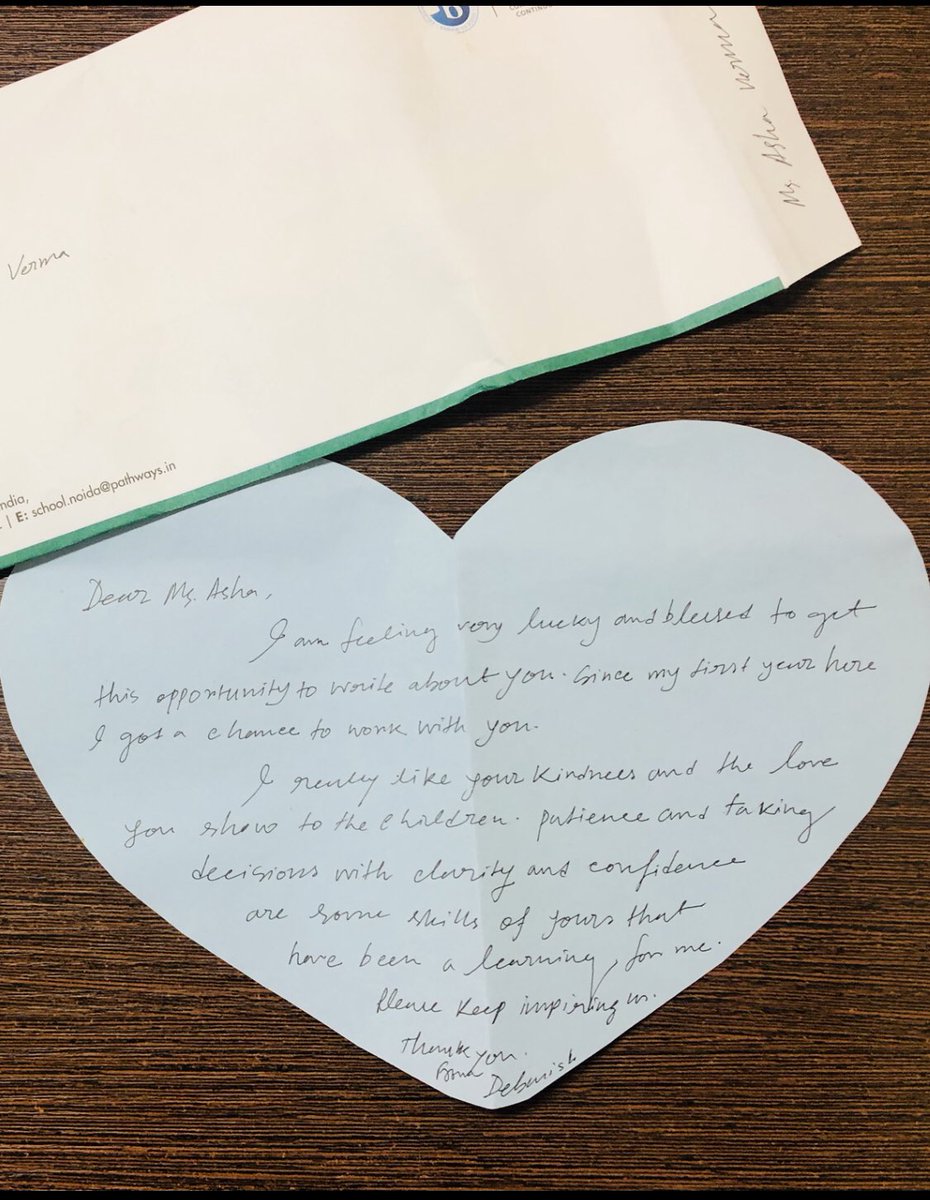 CONTINU
Ms. Asha Verma
Verma
ndia,
| E: school.noida@pathways.in
Dear Ms. Asha,
I am feeling very lucky and blessed to get
this opportunity to write about you. Since my first year here
I got a chance to work with you.
I really like your kindness and the love
you show to the children. patience and taking
decisions with clarity and confidence
are some skills of yours that
have been a learning, for me.
Please keep inspiring us.
Thank you.
From
Debanish